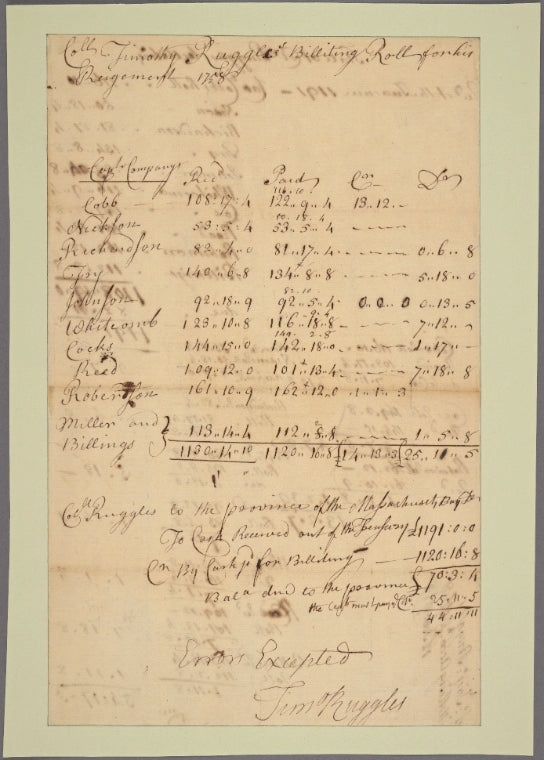 Coll Timothy Ruggles's Billiting Roll for his
Regement 1758
Capts Companys Recd Paid Cr Dr
116 10
Cobb — 108:17:4 122 „ 9 „ 4 13 „ 12 „ —
10 . 18 . 4
Nickson 53:5:4 53 „ 5 „ 4 — — —
Richardson 82 „ 4 „ 0 81 „ 17 „ 4 — — — 0 „ 6 „ 8
Fry 140 „ 6 „ 8 134 „ 8 „ 8 5 „ 18 „ 0
82 . 10 .
Johnson 92 „ 18 „ 9 92 „ 5 „ 4 0 „ 0 „ 0 0 „ 13 „ 5
Whitcomb 123 „ 10 „ 8 116 „ 18 „ 8 — — — 7 „ 12 „
Cocks 144 „ 15 „ 0 142 „ 18 „ 0 — — — 1 „ 17 „ —
Reed 109 „ 12 „ 0 101 „ 13 „ 4 — — — 7 „ 18 „ 8
Robertson 161 „ 10 „ 9 162 „ 12 „ 0 1 „ 1 „ 3
Miller and
Billings } 113 „ 14 „ 4 112 „ 8 „ 8 — — — 1 „ 5 „ 8
1130 „ 14 „ 10 1120 „ 16 „ 8 14 „ 13 „ 3 25 „ 11 „ 5
Coll Ruggles to the province of the Massachusets Bay Dr
To Cash Received out of the Treasury £1191:0:0
Cr By Cash pd for Billiting — 1120:16:8
Bala due to the province 70:3:4
the Capts must pay 25 „ 11 „ 5
44 „ 11 „ 11
Errors Excepted
Timo Ruggles